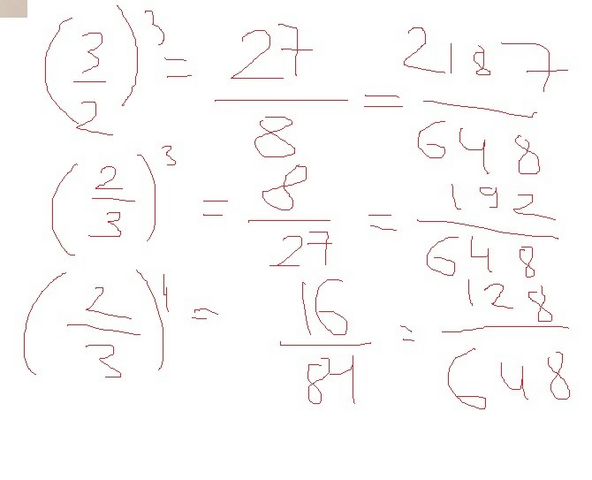 (3/2)³ = 27/8 = 2187/648
(2/3)³ = 8/27 = 192/648
(2/3)⁴ = 16/81 = 128/648